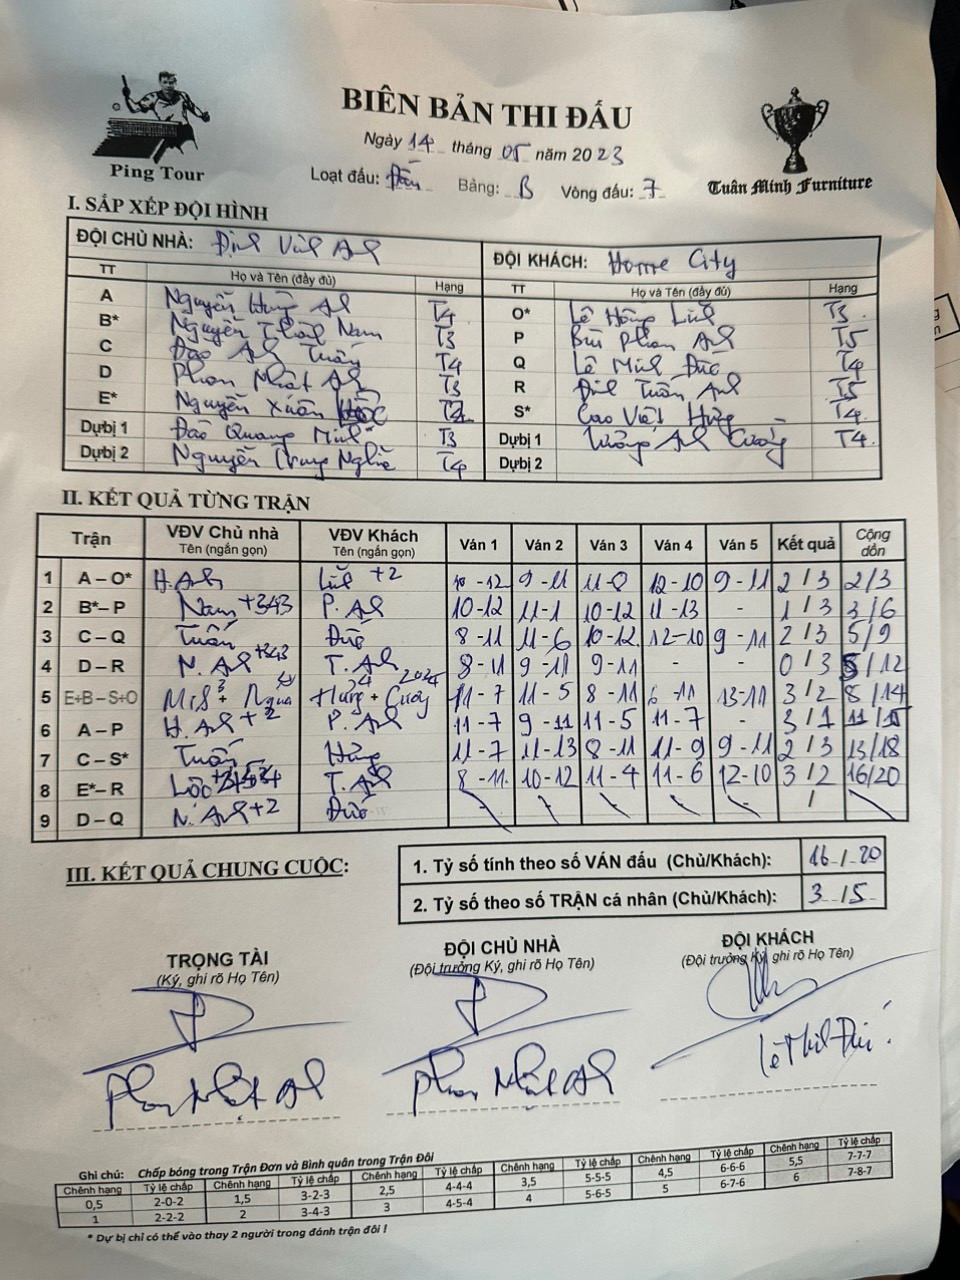 BIÊN BẢN THI ĐẤU
Ngày 14 tháng 05 năm 2023
Loạt đấu: Bảng: B Vòng đấu: 7
Ping Tour
Tuấn Minh Furniture
I. SẮP XẾP ĐỘI HÌNH
ĐỘI CHỦ NHÀ: ĐỘI KHÁCH: Home City
TT Họ và Tên (đầy đủ) Hạng TT Họ và Tên (đầy đủ) Hạng
A Nguyễn Hùng Anh T4 O* Lê Hồng Linh T3
B* Nguyễn Thành Nam T3 P Bùi Phan Anh T5
C Đào Anh Tuấn T4 Q Lê Minh Đức T4
D Phan Nhật Anh T3 R Đinh Tuấn Anh T5
E* Nguyễn Xuân Lộc S* Cao Việt Hưng T4
Dự bị 1 Đào Quang Minh T3 Dự bị 1 Anh Cường T4
Dự bị 2 Nguyễn Trung Nghĩa T4 Dự bị 2
II. KẾT QUẢ TỪNG TRẬN
Trận VĐV Chủ nhà Tên (ngắn gọn) VĐV Khách Tên (ngắn gọn) Ván 1 Ván 2 Ván 3 Ván 4 Ván 5 Kết quả Cộng dồn
1 A – O* H.Anh Linh +2 10-12 9-11 11-8 12-10 9-11 2/3 2/3
2 B* – P Nam +343 P.Anh 10-12 11-1 10-12 11-13 - 1/3 3/6
3 C – Q Tuấn Đức 8-11 11-6 10-12 12-10 9-11 2/3 5/9
4 D – R N.Anh +343 T.Anh 8-11 9-11 9-11 - - 0/3 5/12
5 E+B – S+O Hưng + Cường 11-7 11-5 8-11 6-11 13-11 3/2 8/14
6 A – P H.Anh +2 P.Anh 11-7 9-11 11-5 11-7 - 3/1 11/15
7 C – S* Tuấn Hưng 11-7 11-13 8-11 11-9 9-11 2/3 13/18
8 E* – R Lộc T.Anh 8-11 10-12 11-4 11-6 12-10 3/2 16/20
9 D – Q N.Anh +2 Đức /
III. KẾT QUẢ CHUNG CUỘC:
1. Tỷ số tính theo số VÁN đấu (Chủ/Khách): 16/20
2. Tỷ số theo số TRẬN cá nhân (Chủ/Khách): 3/5
TRỌNG TÀI ĐỘI CHỦ NHÀ ĐỘI KHÁCH
(Ký, ghi rõ Họ Tên) (Đội trưởng Ký, ghi rõ Họ Tên) (Đội trưởng Ký, ghi rõ Họ Tên)
Phan Nhật Anh Phan Nhật Anh Lê Minh Đức
Ghi chú: Chấp bóng trong Trận Đơn và Bình quân trong Trận Đôi
Chênh hạng Tỷ lệ chấp Chênh hạng Tỷ lệ chấp Chênh hạng Tỷ lệ chấp Chênh hạng Tỷ lệ chấp Chênh hạng Tỷ lệ chấp Chênh hạng Tỷ lệ chấp
0,5 2-0-2 1,5 3-2-3 2,5 4-4-4 3,5 5-5-5 4,5 6-6-6 5,5 7-7-7
1 2-2-2 2 3-4-3 3 4-5-4 4 5-6-5 5 6-7-6 6 7-8-7
* Dự bị chỉ có thể vào thay 2 người trong đánh trận đôi !